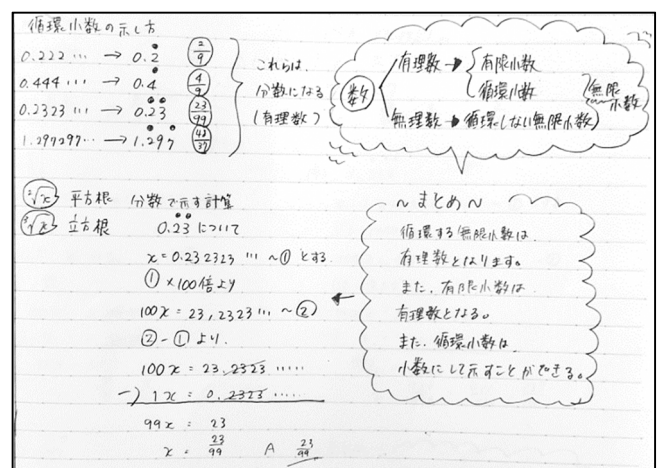 循環小数の示し方
0.222… → 0.2̇ 2/9
0.444… → 0.4̇ 4/9
0.2323… → 0.2̇3̇ 23/99
1.297297… → 1.2̇97̇ 48/37
これらは、
分数になる
(有理数)
数
有理数→ 有限小数
循環小数
無理数→循環しない無限小数
無限
小数
²√x 平方根 分数で示す計算
³√x 立方根 0.2̇3̇について
x=0.232323…~①とする
①×100倍より
100x=23,2323…~②
②-①より.
100x=23.2323……
-) 1x=0.2323……
99x=23
x=23/99 A 23/99
~まとめ~
循環する無限小数は
有理数となります。
また、有限小数は
有理数となる。
また、循環小数は
小数にして示すことができる。